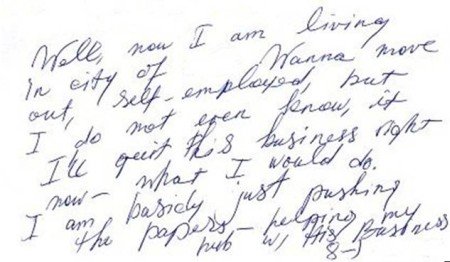 Well, now I am living
in city of Wanna move
out, self-employed, but
I do not even know, if
I'll quit this business right
now - what I would do.
I am basicly just pushing
the papers - helping my
hub w/ this Business
8-5